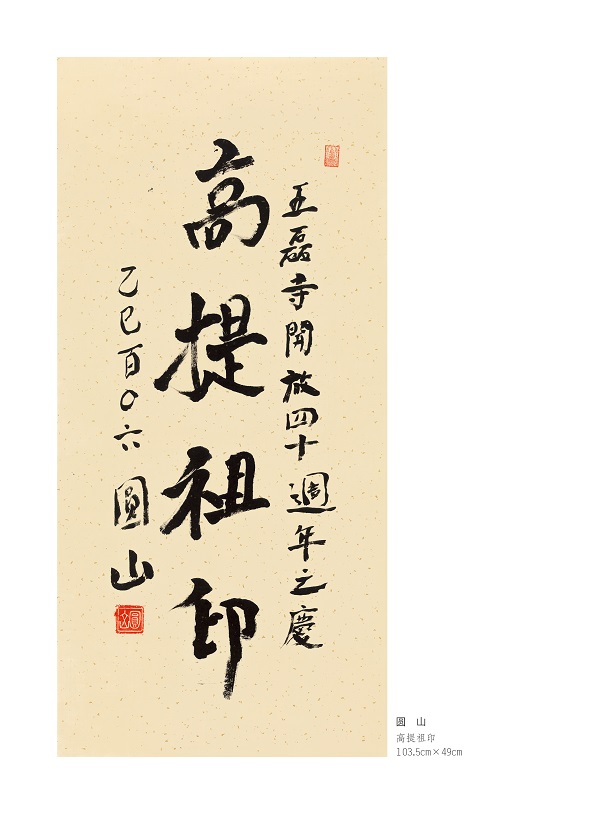 五磊寺開放四十週年之慶
高提祖印
乙巳百〇六圓山
圆 山
高提祖印
103.5cm×49cm